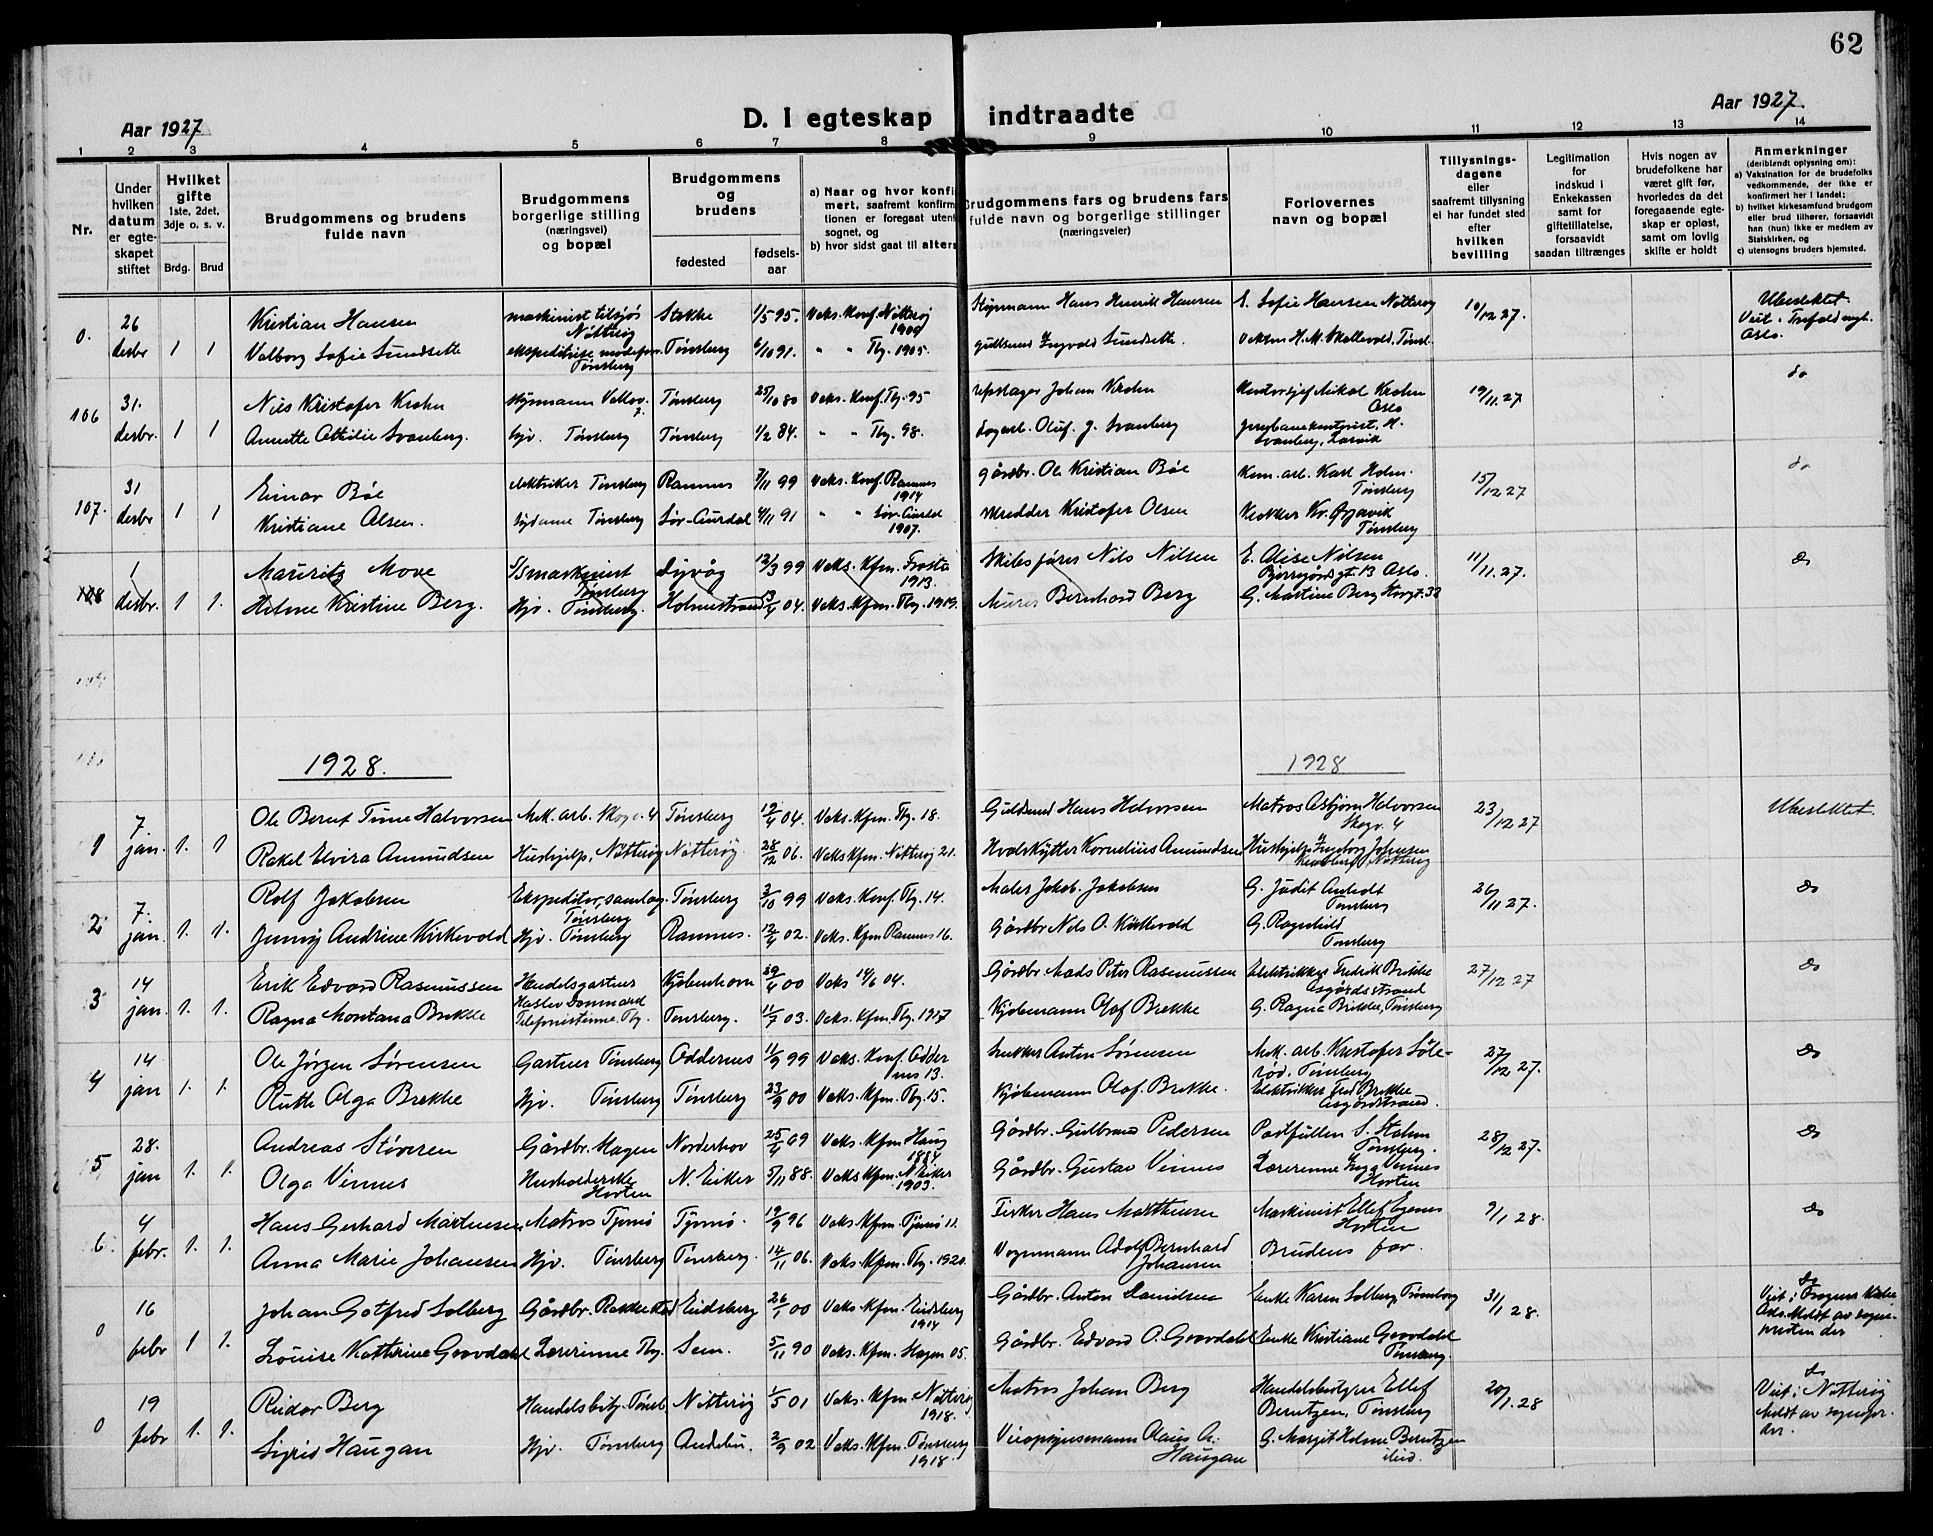 62
Aar 1927
D. I egteskap indtraadte
Aar 1927.
1 2 3 4 5 6 7 8 9 10 11 12 13 14
Nr.
Under hvilken datum er egteskapet stiftet
Hvilket gifte
1ste, 2det, 3dje o. s. v.
Brdg. Brud
Brudgommens og brudens fulde navn
Brudgommens borgerlige stilling (næringsvei) og bopæl
Brudgommens og brudens
fødested
fødsels-aar
a) Naar og hvor konfirmert, saafremt konfirmationen er foregaat utenfor sognet, og
b) hvor sidst gaat til alters
Brudgommens fars og brudens fars fulde navn og borgerlige stillinger (næringsveier)
Forlovernes navn og bopæl
Tillysnings-dagene eller saafremt tillysning ei har fundet sted efter hvilken bevilling
Legitimation for indskud i Enkekassen samt for giftetillatelse, forsaavidt saadan tiltrænges
Hvis nogen av brudefolkene har været gift før, hvorledes da det foregaaende egteskap er opløst, samt om lovlig skifte er holdt
Anmerkninger
(deriblandt oplysning om):
a) Vaksination for de brudefolks vedkommende, der ikke er konfirmert her i landet;
b) hvilket kirkesamfund brudgom eller brud tilhører, forsaavidt han (hun) ikke er medlem av Statskirken, og
c) utensogns bruders hjemsted.
0. 26 desbr 1 1
Kristian Hansen maskinist tilsjøs Nøtterøy Stokke 1/5 95. Vaks. Konf. Nøtterøy 1909 Styrmann Hans Henrik Hansen E. Sofie Hansen Nøtterøy 10/12 27. Ubeslektet. Viet i Trefoldengh. Oslo.
Valborg Sofie Sundsette Tønsberg Tønsberg 6/10 91. " " Tbg. 1905. gullsmed Ingvald Sundsette. H. M. Skallevold, Tønsb.
106 31. desbr. 1 1
Nils Kristofer Krohn styrmann Tønsberg 25/10 80 Vaks. Konf. Tbg. 95 Johan Krohn Kontorsjef Mikal Krohn Oslo 19/11. 27. do
Annette Otilie Svanberg. Hjv. Tønsberg Tønsberg 1/2 84. " " Tbg. 98. Oluf. J. Svanberg H. Svanberg, Larvik
107. 31 desbr 1 1
Einar Bøe elektriker Tønsberg Ramnes 7/11 99 Vaks. Konf. Ramnes 1914 Gårdbr. Ole Kristian Bøe Kom. arb. Karl Holm. Tønsberg 15/12 27 do
Kristiane Olsen. Tønsberg Sør-Aurdal 4/11 91 " " Sør-Aurdal 1907. Skredder Kristofer Olsen Kr. Gjøvik Tønsberg
108 1 desbr. 1 1.
Mauritz Move S/S maskinist Tønsberg Dyvåg 12/3 99 Vaks. Kfm. Froste 1913. Skibsfører Nils Nilsen E. Alise Nilsen Bjerregårdsgt. 13 Oslo. 11/11. 27. do
Helene Kristine Berg. Hjv. Tønsberg. Holmestrand 04. Vaks. Kfm. Tbg. 1919. Murer Bernhard Berg G. Martine Berg Storgt. 32
109
110
1928. 1928
1 7. jan. 1. 1
Ole Bernt Time Halvorsen Mek. arb. Skogv. 4 Tønsberg 12/4 04. Vaks. Kfm. Tbg. 18. Guldsmed Hans Halvorsen Matros Asbjørn Halvorsen Skogv. 4 23/12 27 Ubeslektet.
Rakel Elvira Amundsen Hushjelp, Nøtterøy Nøtterøy. 28/12 06. Vaks Kfm. Nøtterøy 21. Hvalskytter Kornelius Amundsen Hushjelp Ingeborg Johnsen Nøtterøy
2 7. jan. 1. 1.
Rolf Jakobsen Ekspeditør, samlag. Tønsberg Tønsberg 3/10 99 Vaks. Konf. Tbg. 14. Maler Jakob. Jakobsen G. Judit Tønsberg 26/11 27. do
Jenny Andrine Kirkevold Hjv. Tønsberg Ramnes. 12/4 02. Vaks. Kfm Ramnes 16. Gårdbr Nils O. Kirkevold G. Ragnhild Tønsberg
3 14 jan. 1. 1.
Erik Edvard Rasmussen Handelsgartner Haslev Danmark Kjøbenhavn 29/4 00 Vaks 14/6 04. Gårdbr Mads Peter Rasmussen Elektrikker Fredrik Brekke Åsgårdsstrand 27/12 27 do
Ragna Montana Brekke Telefonistinne Tbg. Tønsberg. 11/7 03. Vaks. Kfm. Tbg. 1917 Kjøbmann Olof Brekke G. Ragna Brekke, Tønsberg
4 14 jan 1. 1.
Ole Jørgen Sørensen Gartner Tønsberg Oddernes 11/9 99 Vaks. Konf. Oddernes 13. Anton Sørensen Mek. arb. Kristofer Sølerød, Tønsberg 27/12 27. do
Ruth Olga Brekke Hjv. Tønsberg Tønsberg 23/9 00 Vaks. Kfm. Tbg. 15. Kjøbmann Olof. Brekke. Elektrikker Fred Brekke Åsgårdstrand.
5 28. jan 1. 1.
Andreas Støveren Gårdbr. Slagen Norderhov 25/4 69 Vaks. Kfm Haug 1884 Gårdbr. Gulbrand Pedersen S. Holm Tønsberg. 28/12 27. do
Olga Vinnes Husholderske Horten N. Eiker 5/11 88. Vaks Kfm. N. Eiker 1903. Gårdbr. Gustav Vinnes Lærerinne Inga Vinnes Horten
6. 4 febr. 1. 1.
Hans Gerhard Martinsen Matros Tjømø Tjømø. 19/9 96 Vaks. Kfm. Tjømø 11. Fisker Hans Matthisen Maskinist Ellef Egenes Horten 9/1 28. do
Anna Marie Johansen Hjv. Tønsberg Tønsberg. 14/11 06. Vaks. Kfm. Tbg. 1920. Vognmann Adolf Bernhard Johansen Brudens far.
0 16 febr 1 1.
Johan Gotfred Solberg Gårdbr. Rakkestad Eidsberg 26/1 00 Vaks. Kfm. Eidsberg 1914 Gårdbr. Anton Danielsen Enke Karen Solberg, Trømborg 31/1 28. do Viet i Frogner Kirke Oslo. Meldt av sognepresten der
Louise Kathrine Gravdahl Lærerinne Tbg. Sem. 5/11 90 Vaks. Kfm. Slagen 05. Gårdbr. Edvard O. Gravdahl Enke Kristiane Gravdahl Tønsberg.
0 19 febr 1. 1.
Reidar Berg Handelsbetj. Tønsb. Nøtterøy 1/5 01 Vaks. Kfm. Nøtterøy 1918. Matros Johan Berg Handelsbestyrer Ellef Berntzen, Tønsberg 20/1. 28 do Viet i Nøtterøy Meldt av sognepr. der.
Sigrid Haugan Hjv. Tønsberg Andebu. 2/9 02 Vaks. Kfm. Tønsberg 1918. Claus A. Haugan G. Margit Helene Berntzen ibid.